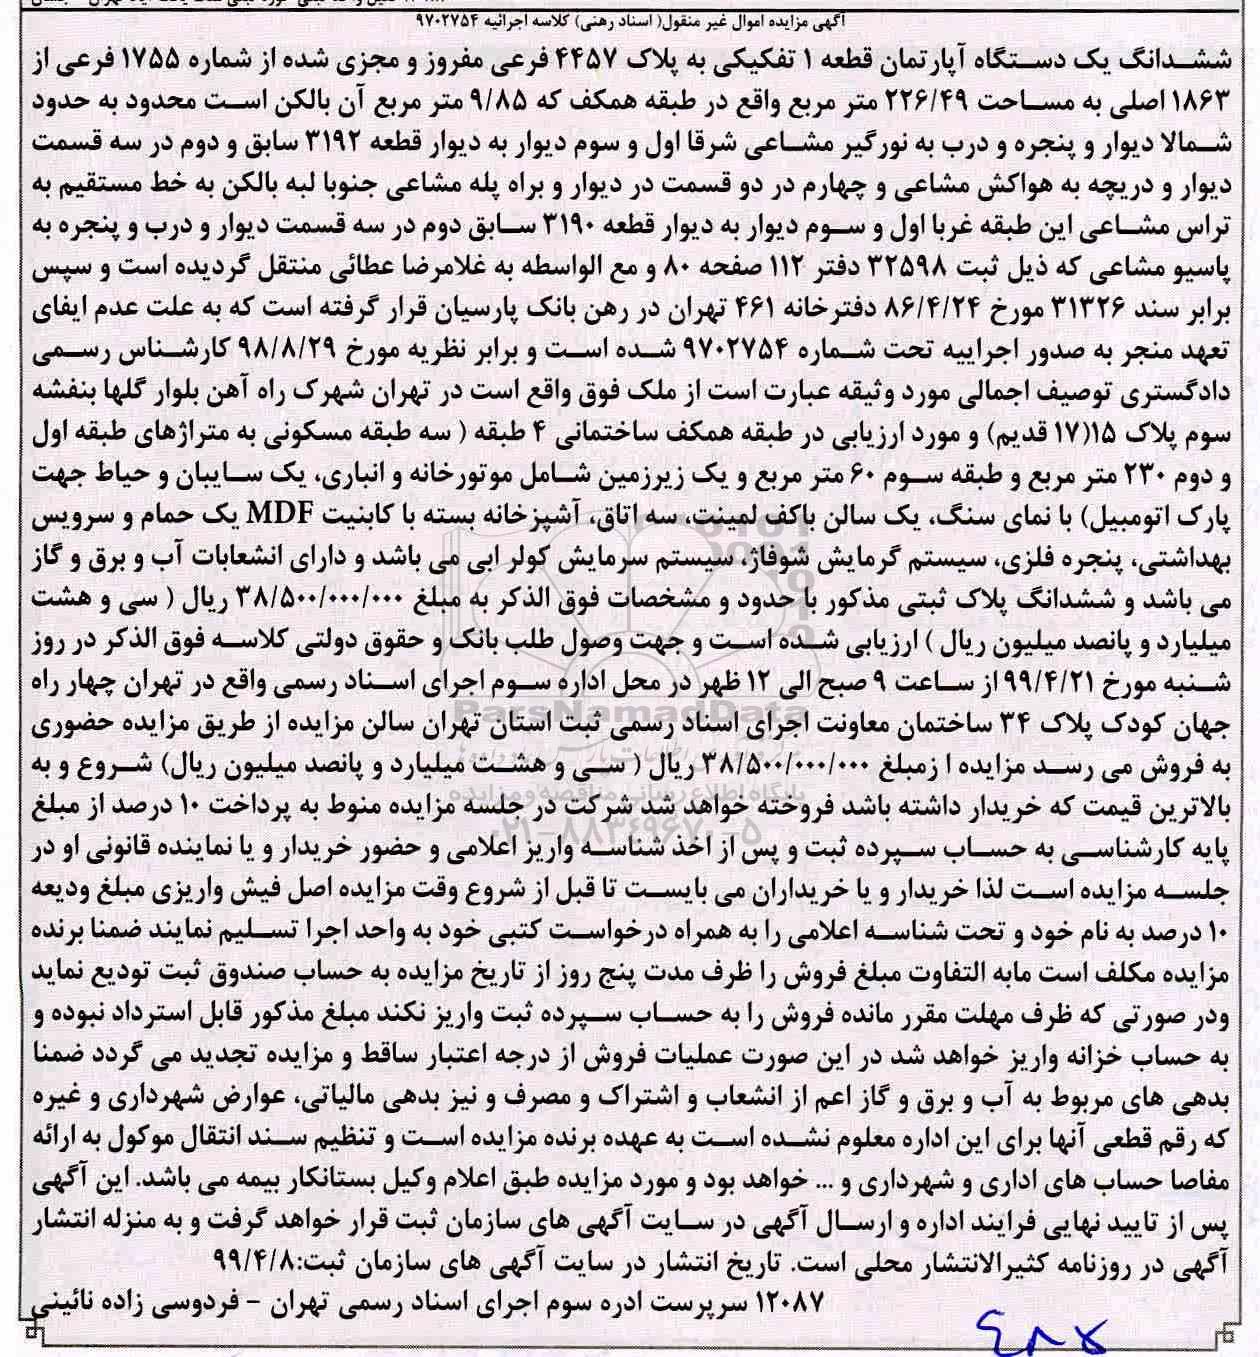 آگهی مزایده اموال غیر منقول( اسناد رهنی) کلاسه اجرائیه ۹۷۰۲۷۵۴
ششدانگ یک دستگاه آپارتمان قطعه ۱ تفکیکی به پلاک ۴۴۵۷ فرعی مفروز و مجزی شده از شماره ۱۷۵۵ فرعی از
۱۸۶۳ اصلی به مساحت ۲۲۶/۴۹ متر مربع واقع در طبقه همکف که ۹/۸۵ متر مربع آن بالکن است محدود به حدود
شمالا دیوار و پنجره و درب به نورگیر مشاعی شرقا اول و سوم دیوار به دیوار قطعه ۳۱۹۲ سابق و دوم در سه قسمت
دیوار و دریچه به هواکش مشاعی و چهارم در دو قسمت در دیوار و براه پله مشاعی جنوبا لبه بالکن به خط مستقیم به
تراس مشاعی این طبقه غربا اول و سوم دیوار به دیوار قطعه ۳۱۹۰ سابق دوم در سه قسمت دیوار و درب و پنجره به
پاسیو مشاعی که ذیل ثبت ۳۲۵۹۸ دفتر ۱۱۲ صفحه ۸۰ و مع الواسطه به غلامرضا عطائی منتقل گردیده است و سپس
برابر سند ۳۱۳۲۶ مورخ ۸۶/۴/۲۴ دفترخانه ۴۶۱ تهران در رهن بانک پارسیان قرار گرفته است که به علت عدم ایفای
تعهد منجر به صدور اجراییه تحت شماره ۹۷۰۲۷۵۴ شده است و برابر نظریه مورخ ۹۸/۸/۲۹ کارشناس رسمی
دادگستری توصیف اجمالی مورد وثیقه عبارت است از ملک فوق واقع است در تهران شهرک راه آهن بلوار گلها بنفشه
سوم پلاک ۱۵(۱۷ قدیم) و مورد ارزیابی در طبقه همکف ساختمانی ۴ طبقه ( سه طبقه مسکونی به متراژهای طبقه اول
و دوم ۲۳۰ متر مربع و طبقه سوم ۶۰ متر مربع و یک زیرزمین شامل موتورخانه و انباری، یک سایبان و حیاط جهت
پارک اتومبیل) با نمای سنگ، یک سالن باکف لمینت، سه اتاق، آشپزخانه بسته با کابنیت MDF یک حمام و سرویس
بهداشتی، پنجره فلزی، سیستم گرمایش شوفاژ، سیستم سرمایش کولر ابی می باشد و دارای انشعابات آب و برق و گاز
می باشد و ششدانگ پلاک ثبتی مذکور با حدود و مشخصات فوق الذکر به مبلغ ۳۸/۵۰۰/۰۰۰/۰۰۰ ریال ( سی و هشت
میلیارد و پانصد میلیون ریال ) ارزیابی شده است و جهت وصول طلب بانک و حقوق دولتی کلاسه فوق الذکر در روز
شنبه مورخ ۹۹/۴/۲۱ از ساعت ۹ صبح الی ۱۲ ظهر در محل اداره سوم اجرای اسناد رسمی واقع در تهران چهار راه
جهان کودک پلاک ۳۴ ساختمان معاونت اجرای اسناد رسمی ثبت استان تهران سالن مزایده از طریق مزایده حضوری
به فروش می رسد مزایده ا زمبلغ ۳۸/۵۰۰/۰۰۰/۰۰۰ ریال ( سی و هشت میلیارد و پانصد میلیون ریال) شروع و به
بالاترین قیمت که خریدار داشته باشد فروخته خواهد شد شرکت در جلسه مزایده منوط به پرداخت ۱۰ درصد از مبلغ
پایه کارشناسی به حساب سپرده ثبت و پس از اخذ شناسه واریز اعلامی و حضور خریدار و یا نماینده قانونی او در
جلسه مزایده است لذا خریدار و یا خریداران می بایست تا قبل از شروع وقت مزایده اصل فیش واریزی مبلغ ودیعه
۱۰ درصد به نام خود و تحت شناسه اعلامی را به همراه درخواست کتبی خود به واحد اجرا تسلیم نمایند ضمنا برنده
مزایده مکلف است مابه التفاوت مبلغ فروش را ظرف مدت پنج روز از تاریخ مزایده به حساب صندوق ثبت تودیع نماید
ودر صورتی که ظرف مهلت مقرر مانده فروش را به حساب سپرده ثبت واریز نکند مبلغ مذکور قابل استرداد نبوده و
به حساب خزانه واریز خواهد شد در این صورت عملیات فروش از درجه اعتبار ساقط و مزایده تجدید می گردد ضمنا
بدهی های مربوط به آب و برق و گاز اعم از انشعاب و اشتراک و مصرف و نیز بدهی مالیاتی، عوارض شهرداری و غیره
که رقم قطعی آنها برای این اداره معلوم نشده است به عهده برنده مزایده است و تنظیم سند انتقال موکول به ارائه
مفاصا حساب های اداری و شهرداری و ... خواهد بود و مورد مزایده طبق اعلام وکیل بستانکار بیمه می باشد. این آگهی
پس از تایید نهایی فرایند اداره و ارسال آگهی در سایت آگهی های سازمان ثبت قرار خواهد گرفت و به منزله انتشار
آگهی در روزنامه کثیرالانتشار محلی است. تاریخ انتشار در سایت آگهی های سازمان ثبت:۹۹/۴/۸
۱۲۰۸۷ سرپرست ادره سوم اجرای اسناد رسمی تهران - فردوسی زاده نائینی
ParsNamadData
پایگاه اطلاع رسانی مناقصه و مزایده
۰۲۱-۸۸۳۴۹۶۷۰-۵